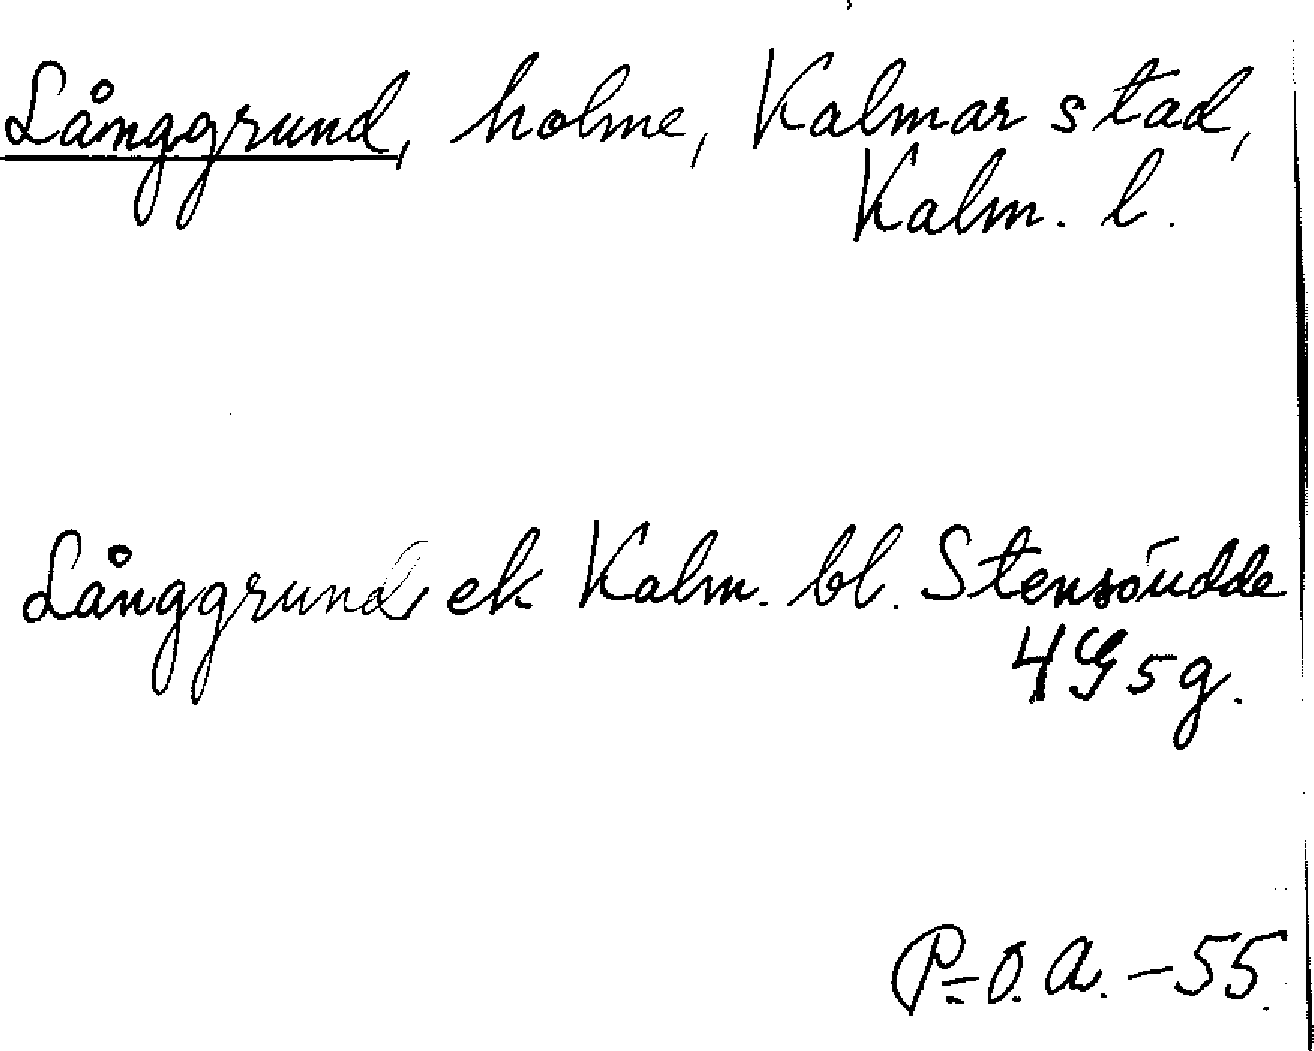 Långgrund, holme, Kalmar stad,
Kalm. l.
Långgrund ek Kalm. bl. Stensöudde
4G5g.
P-O.A. - 55.